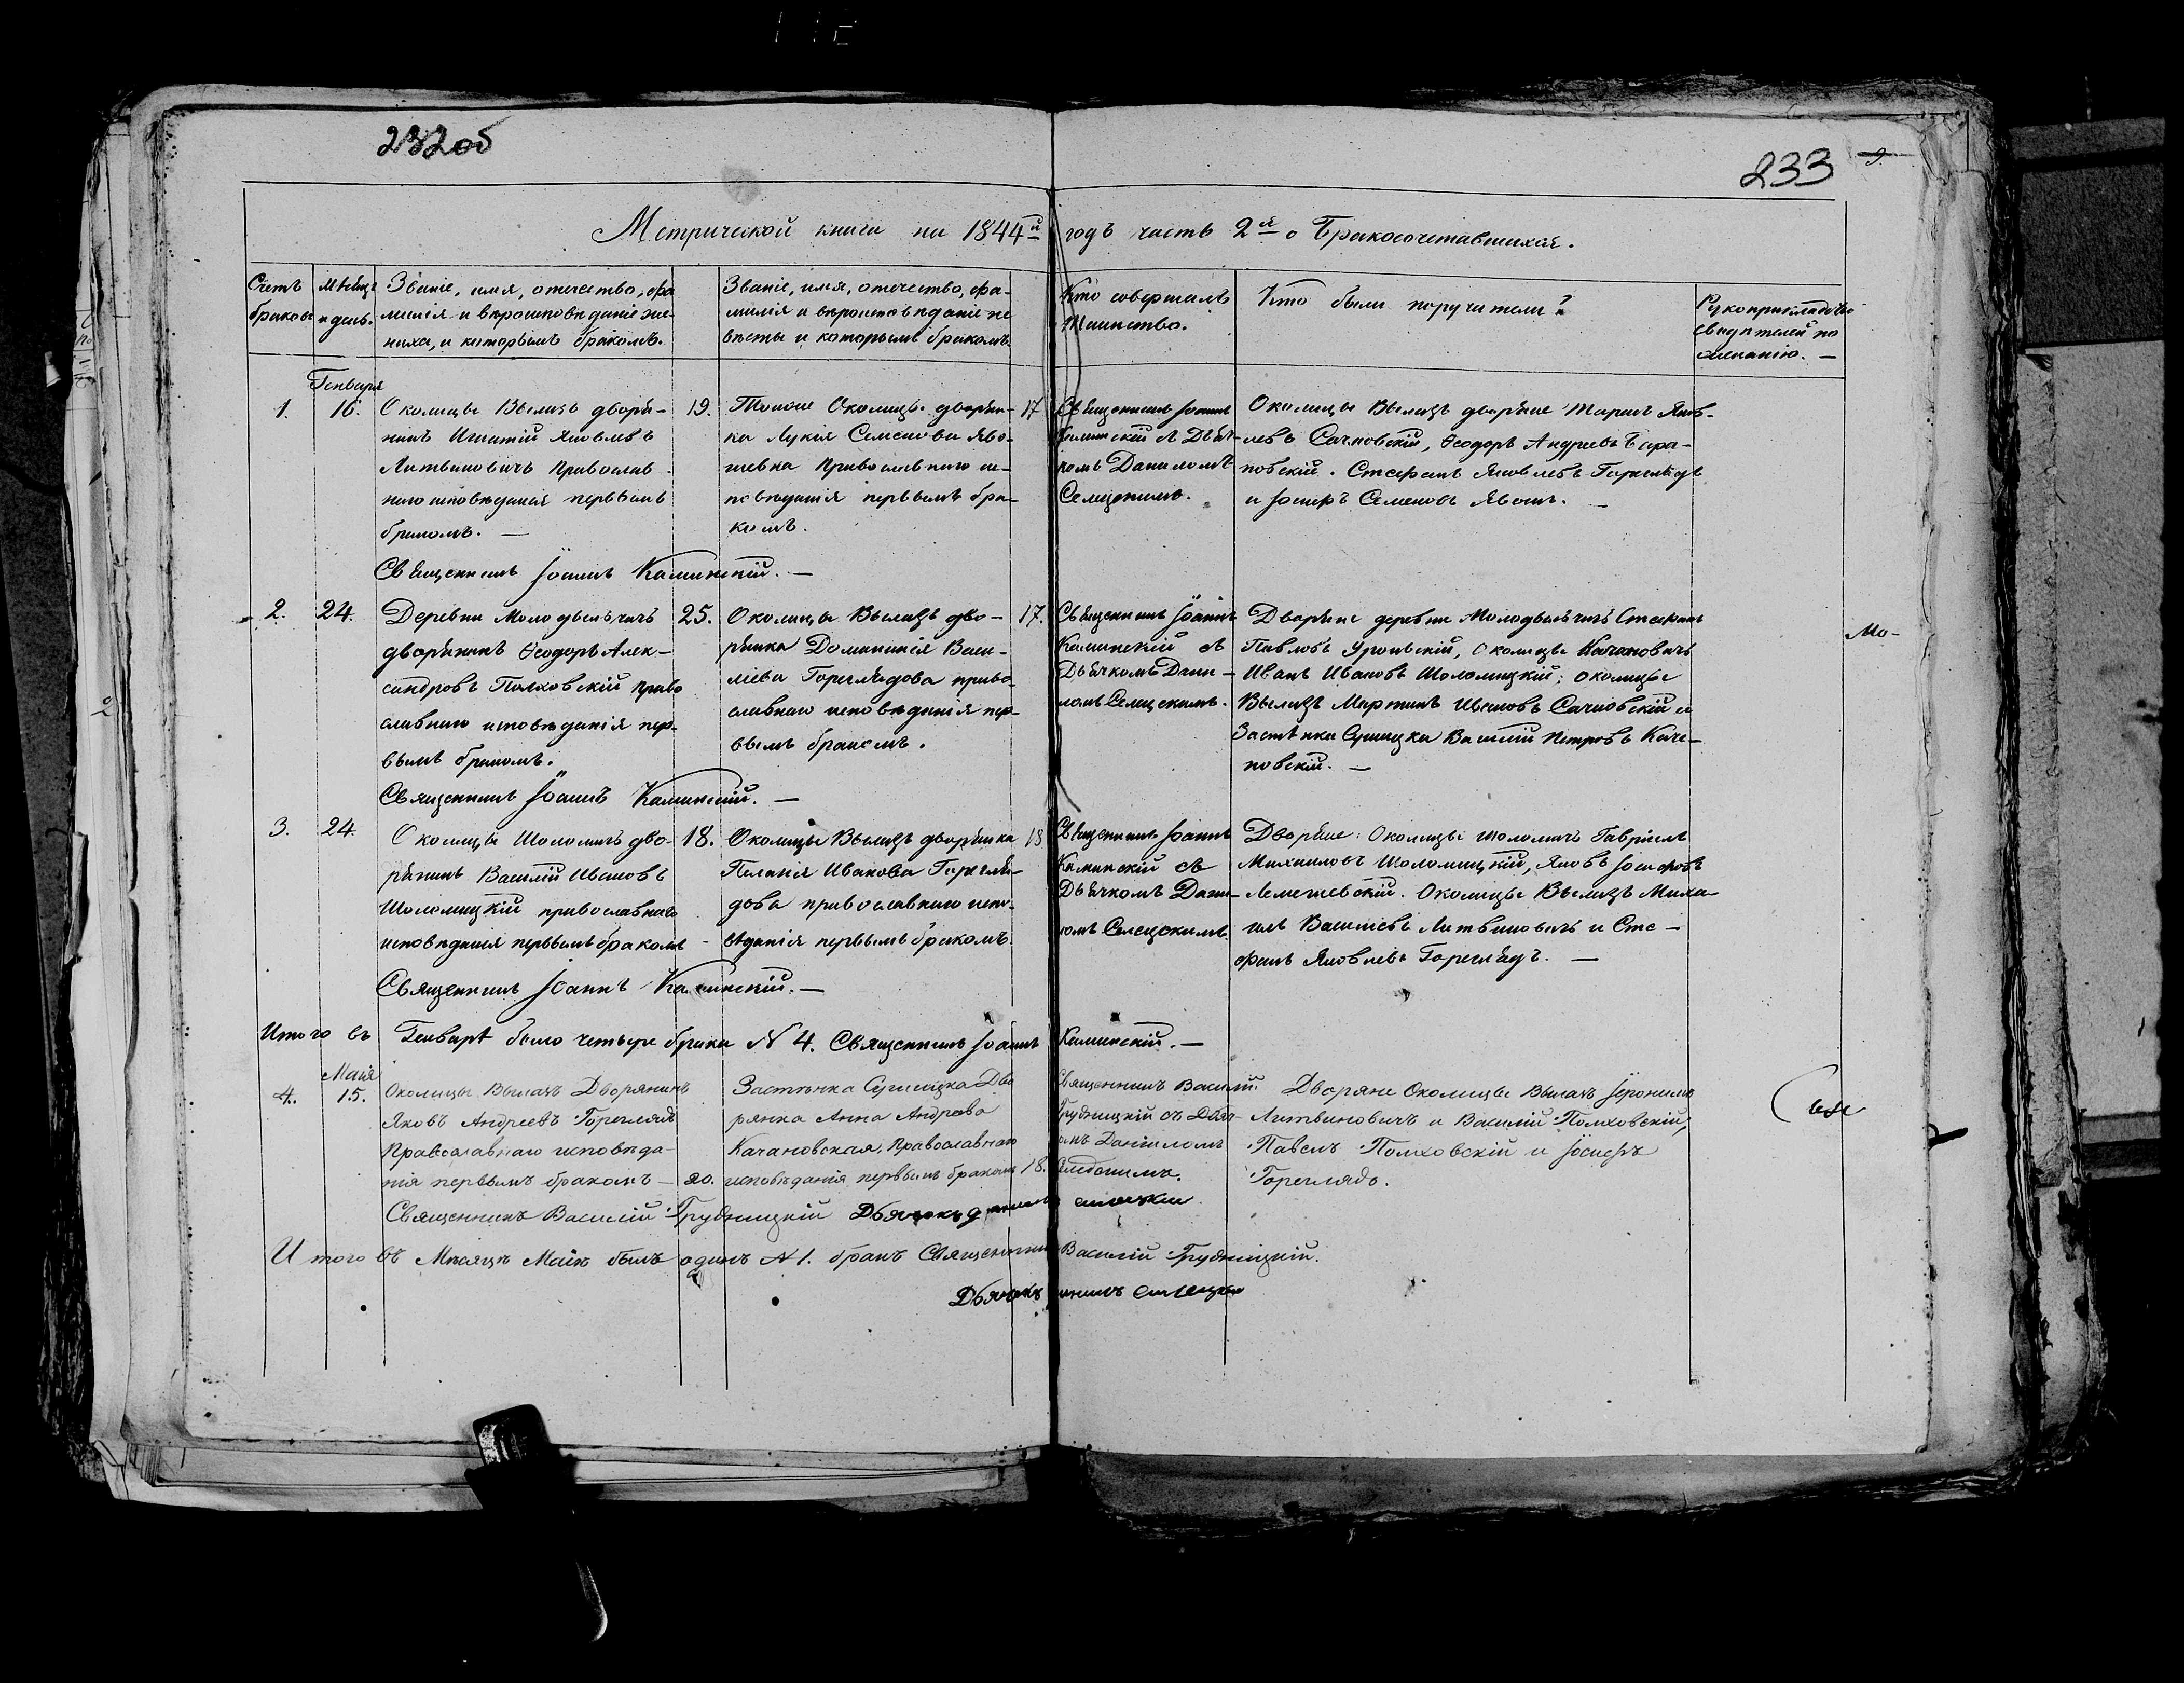 232об
233
Метрической книги на 1844й годъ часть 2я о Бракосочетавшихся.
Счетъ браковъ
Мѣсяцъ и день.
Званіе, имя, отечество, фа
милія и вѣроисповѣданіе же-
ниха, и которымъ бракомъ.
Званіе, имя, отечество, фа-
милія и вѣроисповѣданіе не
вѣсты и которымъ бракомъ
Кто совершалъ
Таинство.
Кто были поручители?
Рукоприкладство
свидѣтелей по
желанію. —
Генваря
1. 16.
Околицы Вылазъ дворя-
нинъ Игнатій Яковлевъ
Литвиновичъ православ-
наго исповѣданія первымъ
бракомъ. —
19.
Тойже Околицы дворян-
ка Лукія Семенова Яво-
православнаго ис-
повѣданія первымъ бра-
комъ.
17
Священникъ Іоаннъ
Каминскій съ Дьяч-
комъ Даниломъ
Селецкимъ.
Околицы Вылазъ дворяне Яков-
левъ Сачковскій, Ѳеодоръ Андреевъ
Стефанъ Яковлевъ Гореглядъ
и Іосифъ Семеновъ
Священникъ Іоаннъ Каминскій. —
2. 24.
Деревни Молодыльчичъ
дворянинъ Ѳеодоръ Алек-
сандровъ Полховскій право
славнаго исповѣданія пер-
вымъ бракомъ.
25.
Околицы Вылазъ дво-
рянка Доминикія Васи-
ліева Гореглядова право-
славнаго исповѣданія пер-
вымъ бракомъ.
17.
Священникъ Іоаннъ
Каминскій съ
Дьячкомъ Дани-
ломъ Селецкимъ.
Дворяне деревни Молодыльчичъ Стефанъ
Павловъ Околицы Качановичъ
Иванъ Ивановъ Шоломицкій; околицы
Вылазъ Мартинъ Ивановъ Сачковскій и
Застѣнка Сушицка Василій Петровъ Кача-
новскій. —
Мо-
Священникъ Іоаннъ Каминскій. —
3. 24.
Околицы Шоломичъ дво-
рянинъ Василій Ивановъ
Шоломицкій православнаго
исповѣданія первымъ бракомъ
18.
Околицы Вылазъ дворянка
Пелагія Иванова Горегля-
дова православнаго испо-
вѣданія первымъ бракомъ.
18
Священникъ Іоаннъ
Каминскій съ
Дьячкомъ Дани-
ломъ Селецкимъ.
Дворяне: Околицы Шоломичъ Гавріилъ
Михаиловъ Шоломицкій, Яковъ Іосифовъ
Лемешевскій. Околицы Вылазъ Миха-
илъ Василіевъ Литвиновичъ и Сте-
фанъ Яковлевъ Гореглядъ. —
Священникъ Іоаннъ Каминскій. —
Итого въ Генварѣ было четыре брака N 4. Священникъ Іоаннъ Каминскій. —
Маія
4. 15.
Околицы Вылазъ Дворянинъ
Яковъ Андреевъ Гореглядъ
Православнаго исповѣда-
нія первымъ бракомъ —
20.
Застѣнка Сушицка Дво
рянка Анна Андреева
Качановская, Православнаго
исповѣданія первымъ бракомъ
18.
Священникъ Василій
Грудницкій съ Дьяч-
омъ Даніиломъ
Дворяне Околицы Вылазъ Іеронимъ
Литвиновичъ и Василій Полховскій,
Павелъ Полховскій и Іосифъ
Гореглядъ.
Священникъ Василій Грудницкій Дьячокъ
Итого въ Мѣсяцѣ Маіѣ былъ одинъ N 1. бракъ Священникъ Василій Грудницкій.
Дьячокъ